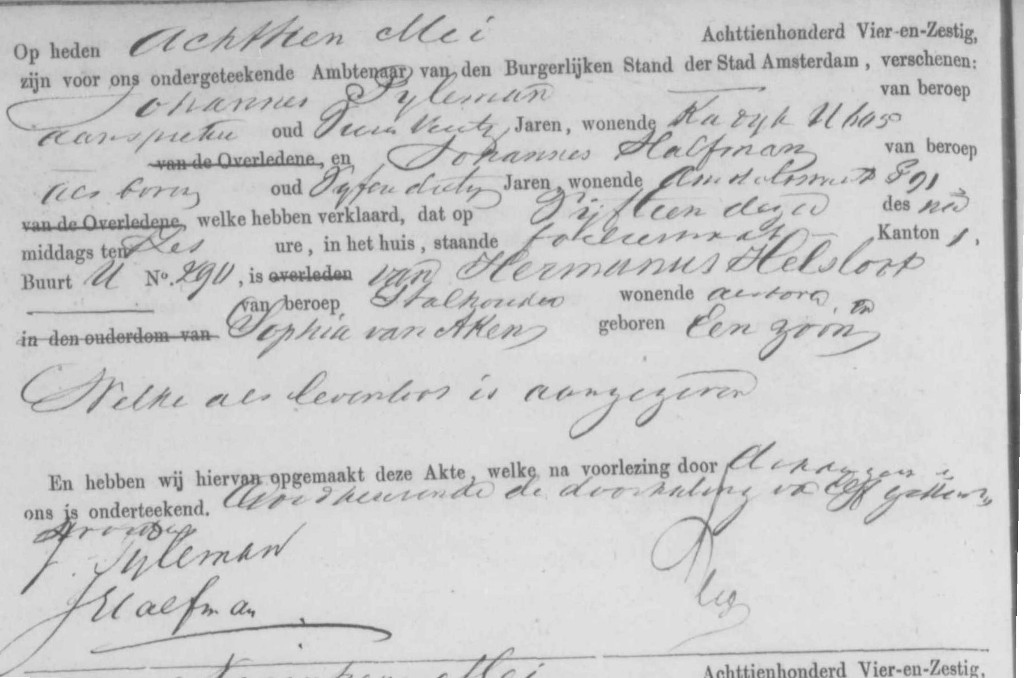 Op heden Achttien Mei Achttienhonderd Vier-en-Zestig,
zijn voor ons ondergeteekende Ambtenaar van den Burgerlijken Stand der Stad Amsterdam, verschenen:
Johannes Pyleman van beroep
aanspreker oud Jaren, wonende Kadyk U
van de Overledene, en Johannes Halfman van beroep
als boven oud Jaren, wonende 
van de Overledene, welke hebben verklaard, dat op Vijftien dezer des na
middags ten Zes ure, in het huis, staande Kanton 1,
Buurt U No. 290, is overleden van Hermanus Helsloot
van beroep Stalhouder wonende als boven en
in den ouderdom van Sophia van Aken geboren Een zoon
Welke als levenloos is aangegeven
En hebben wij hiervan opgemaakt deze Akte, welke na voorlezing door de aangevers en
ons is onderteekend. Goedkeurende de doorhaling van elf gedrukte
woorden
J. Pyleman
J Halfman
Mei Achttienhonderd Vier-en-Zestig,